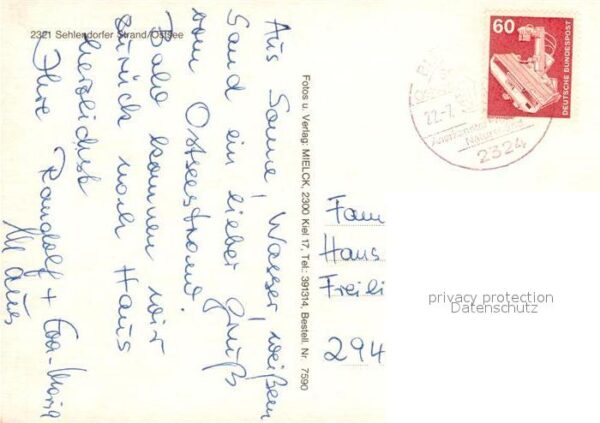 2321 Sehlendorfer Strand/Ostsee
Aus Sonne, Wasser, weißem
Sand ein lieber Gruß
vom Ostseestrand.
Bald kommen wir
zurück nach Haus
herzlichst
Ihre Randolf + Eva-Maria
Fotos u. Verlag: MIELCK, 2300 Kiel 17, Tel.: 391314, Bestell. Nr. 7590
60
DEUTSCHE BUNDESPOST
22.-7.
2324
Fam
Hans
Freili
294
privacy protection
Datenschutz